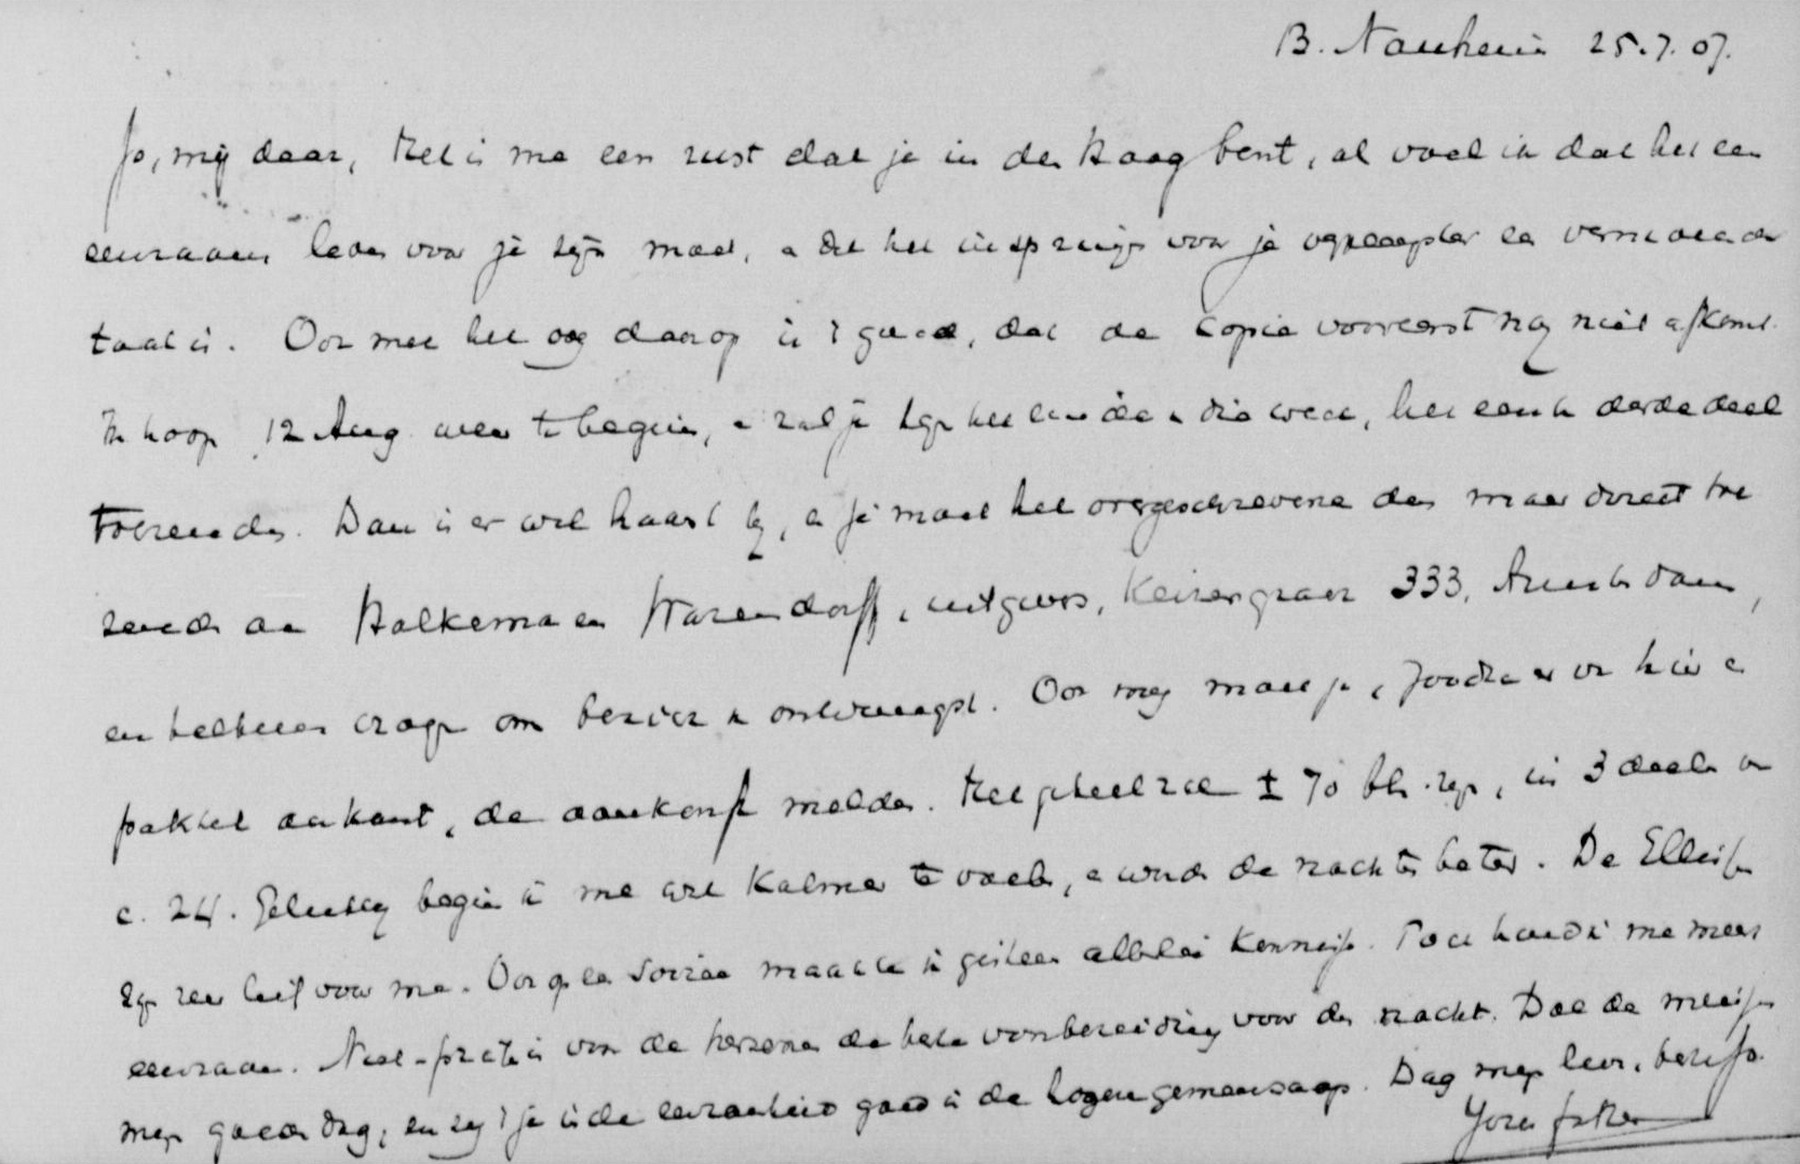 B. Nauheim 25.7.07.
Jo, mijn daar, Het is me een rust dat je in den Haag bent, al voel ik dat het een
eenzaam leven voor je zijn moet, en dat het inspringen voor je en vermoeiender
taak is. Ook met het oog daarop is 't goed, dat de copie vooreerst nog niet afkomt.
Ik hoop 12 Aug weer te beginnen, en zal je tegen het einde dier week, het eerste derde deel
toezenden. Dan is er wel haast bij, en je moet het overgeschrevene dan maar direct toe
zenden aan Holkema en Warendorff, uitgevers, Keizersgracht 333, Amsterdam,
en hen vragen om bericht van ontvangst. Ook mij moet je, zoodra er van hier een
pakket aankomt, de aankomst melden. Het geheel zal ± 70 blz. zijn, in 3 deelen van
c. 24. Gelukkig begin ik me wel kalmer te voelen, en worden de nachten beter. De
zijn zeer lief voor me. Ook op een soiree maakte ik gisteren allerlei kennissen. Toch houd ik me meest
eenzaam. Niet-praten is voor de hersenen de beste voorbereiding voor den nacht. Doe de meisjes
mijn goeden dag, en zij 't je in de eenzaamheid goed in de hogere gemeenschap. Dag mijn lieve, beste Jo.
Your father